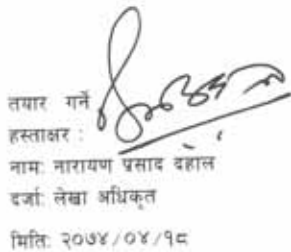 तयार गर्ने
हस्ताक्षर :
नाम: नारायण प्रसाद दहाल
दर्जा: लेखा अधिकृत
मिति: २०७४/०४/१८